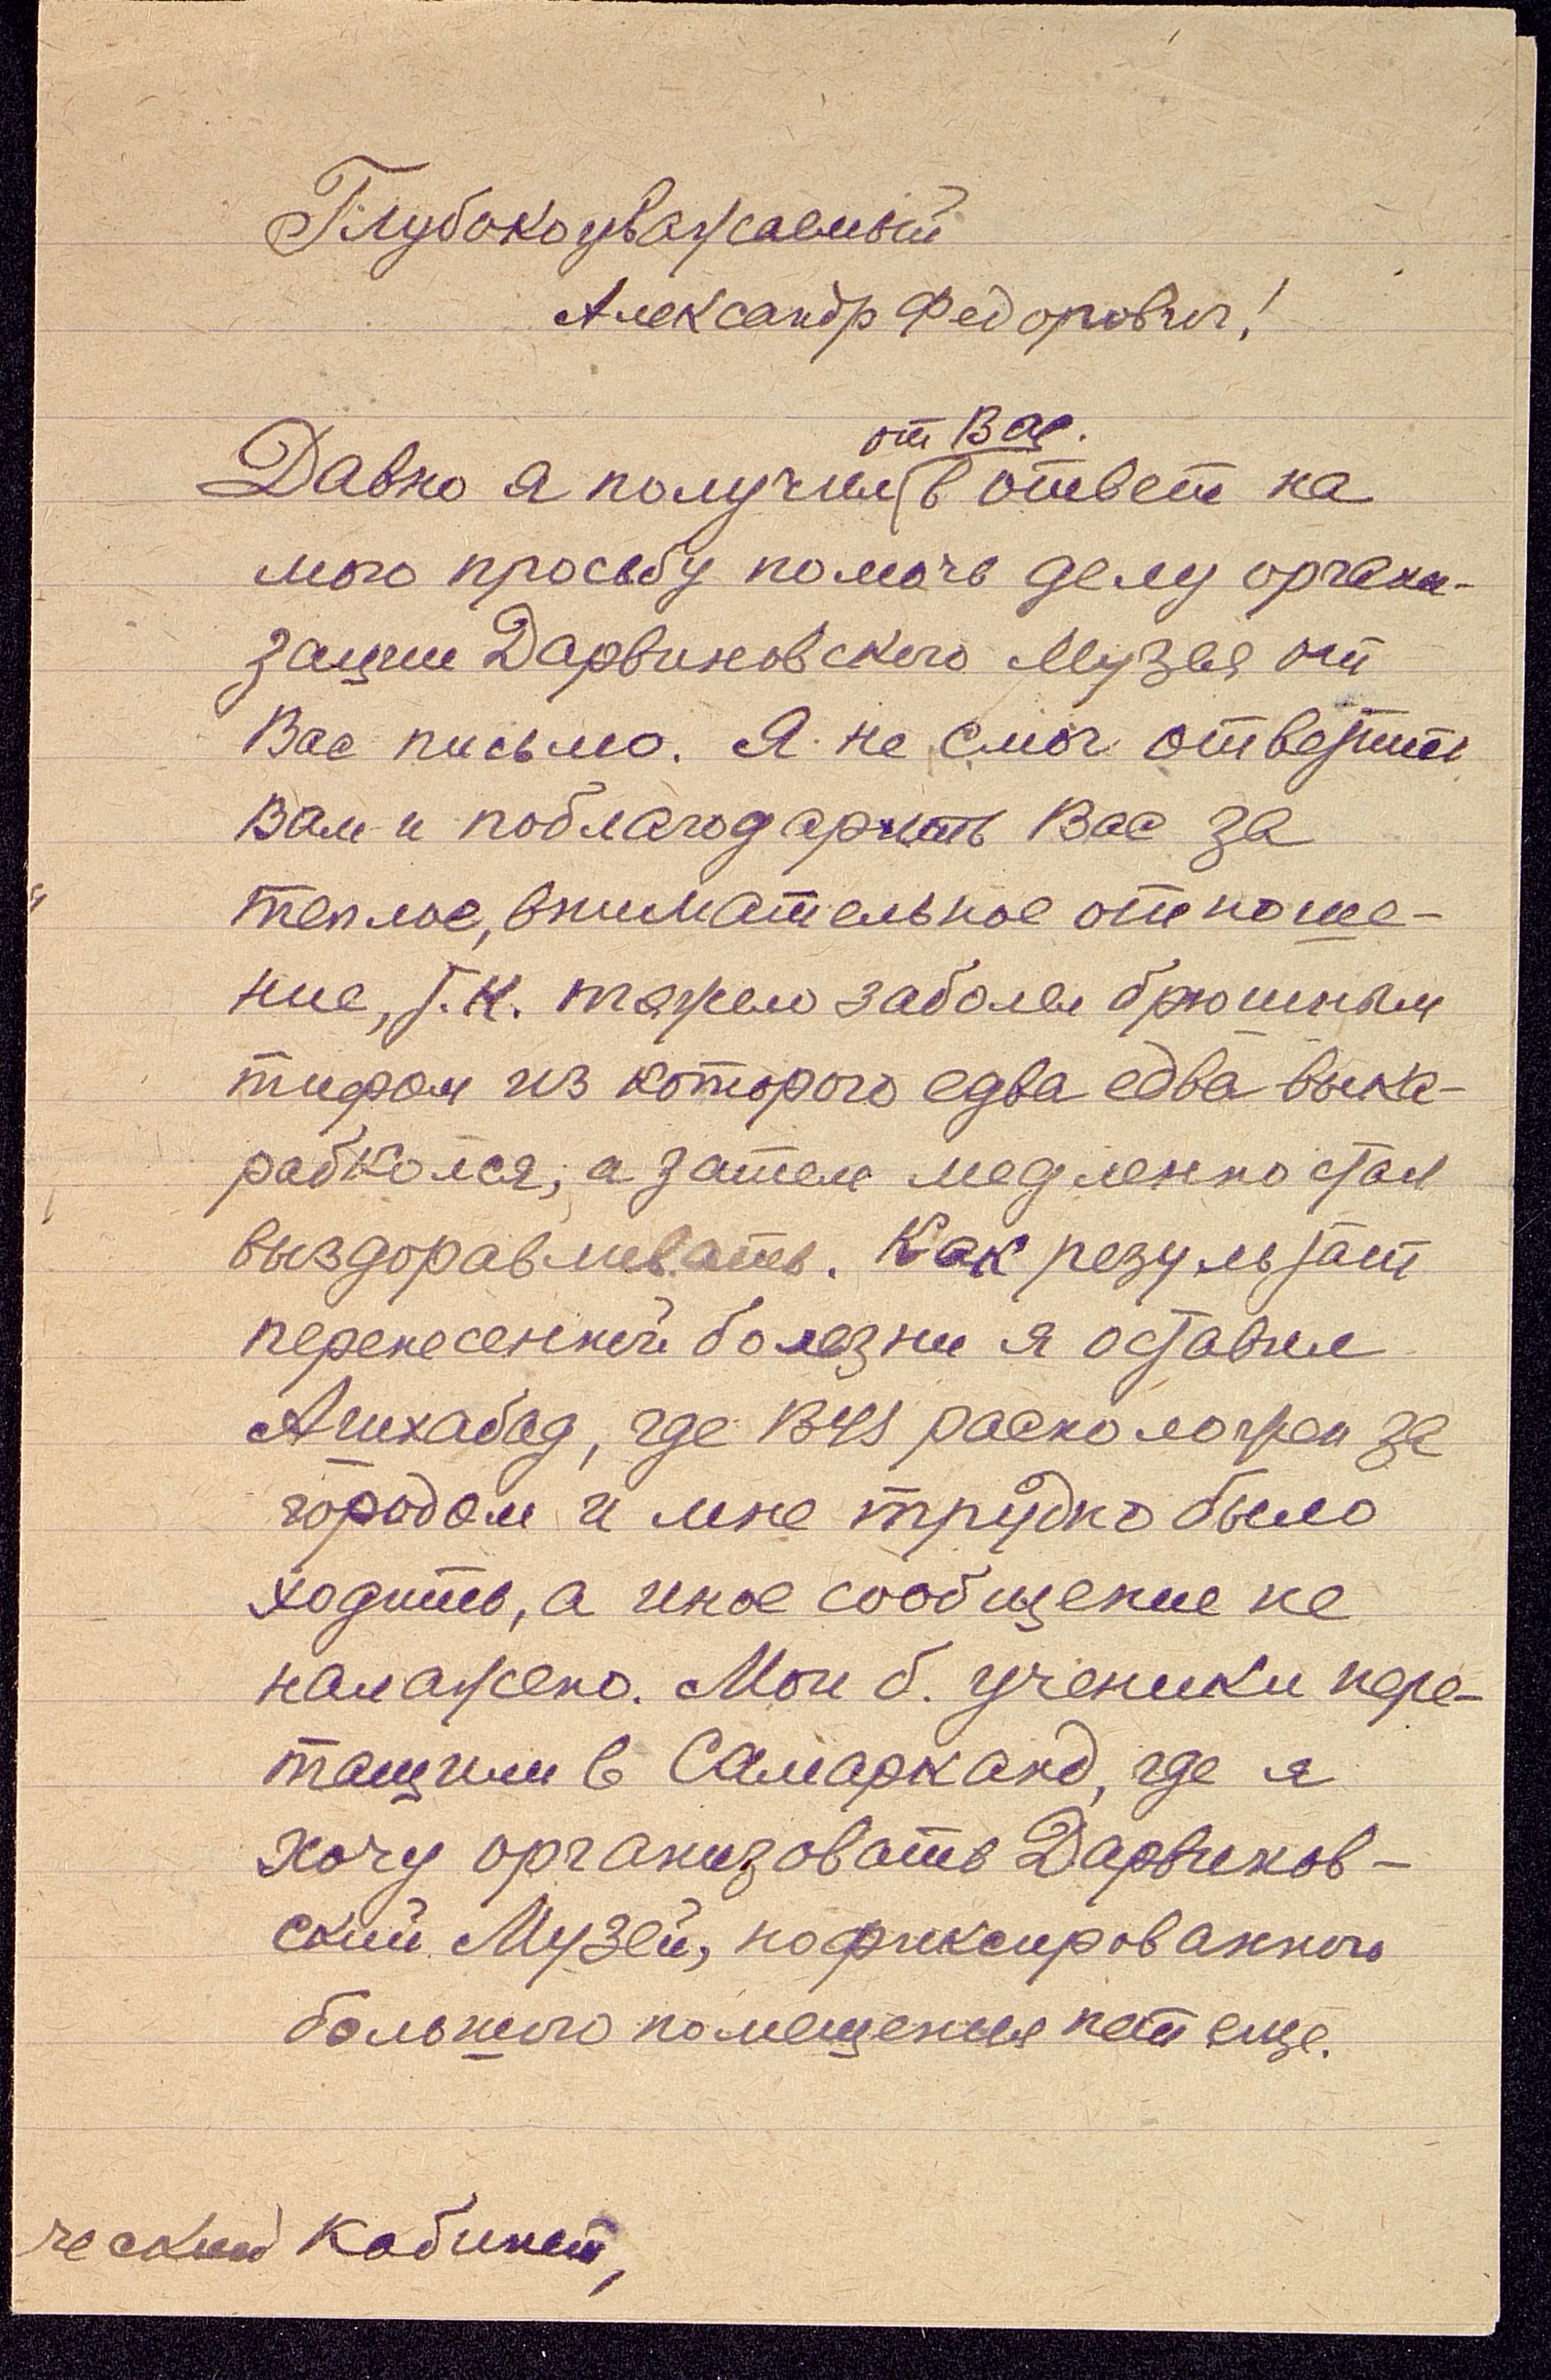 Глубокоуважаемый
Александр Федорович!
от Вас.
Давно я получил в ответ на
мою просьбу помочь делу органи-
зации Дарвиновского Музея от
Вас письмо. Я не смог ответить
Вам и поблагодарить Вас за
теплое, внимательное отноше-
ние, т.к. тяжело заболел брюшным
тифом из которого едва едва выка-
рабкался, а затем медленно стал
выздоравливать. Как результат
перенесенной болезни я оставил
Ашхабад, где ВУЗ расположен за
городом и мне трудно было
ходить, а иное сообщение не
налажено. Мои б. ученики пере-
тащили в Самарканд, где я
хочу организовать Дарвинов-
ский Музей, но фиксированного
большого помещения нет еще.
ческий кабинет,